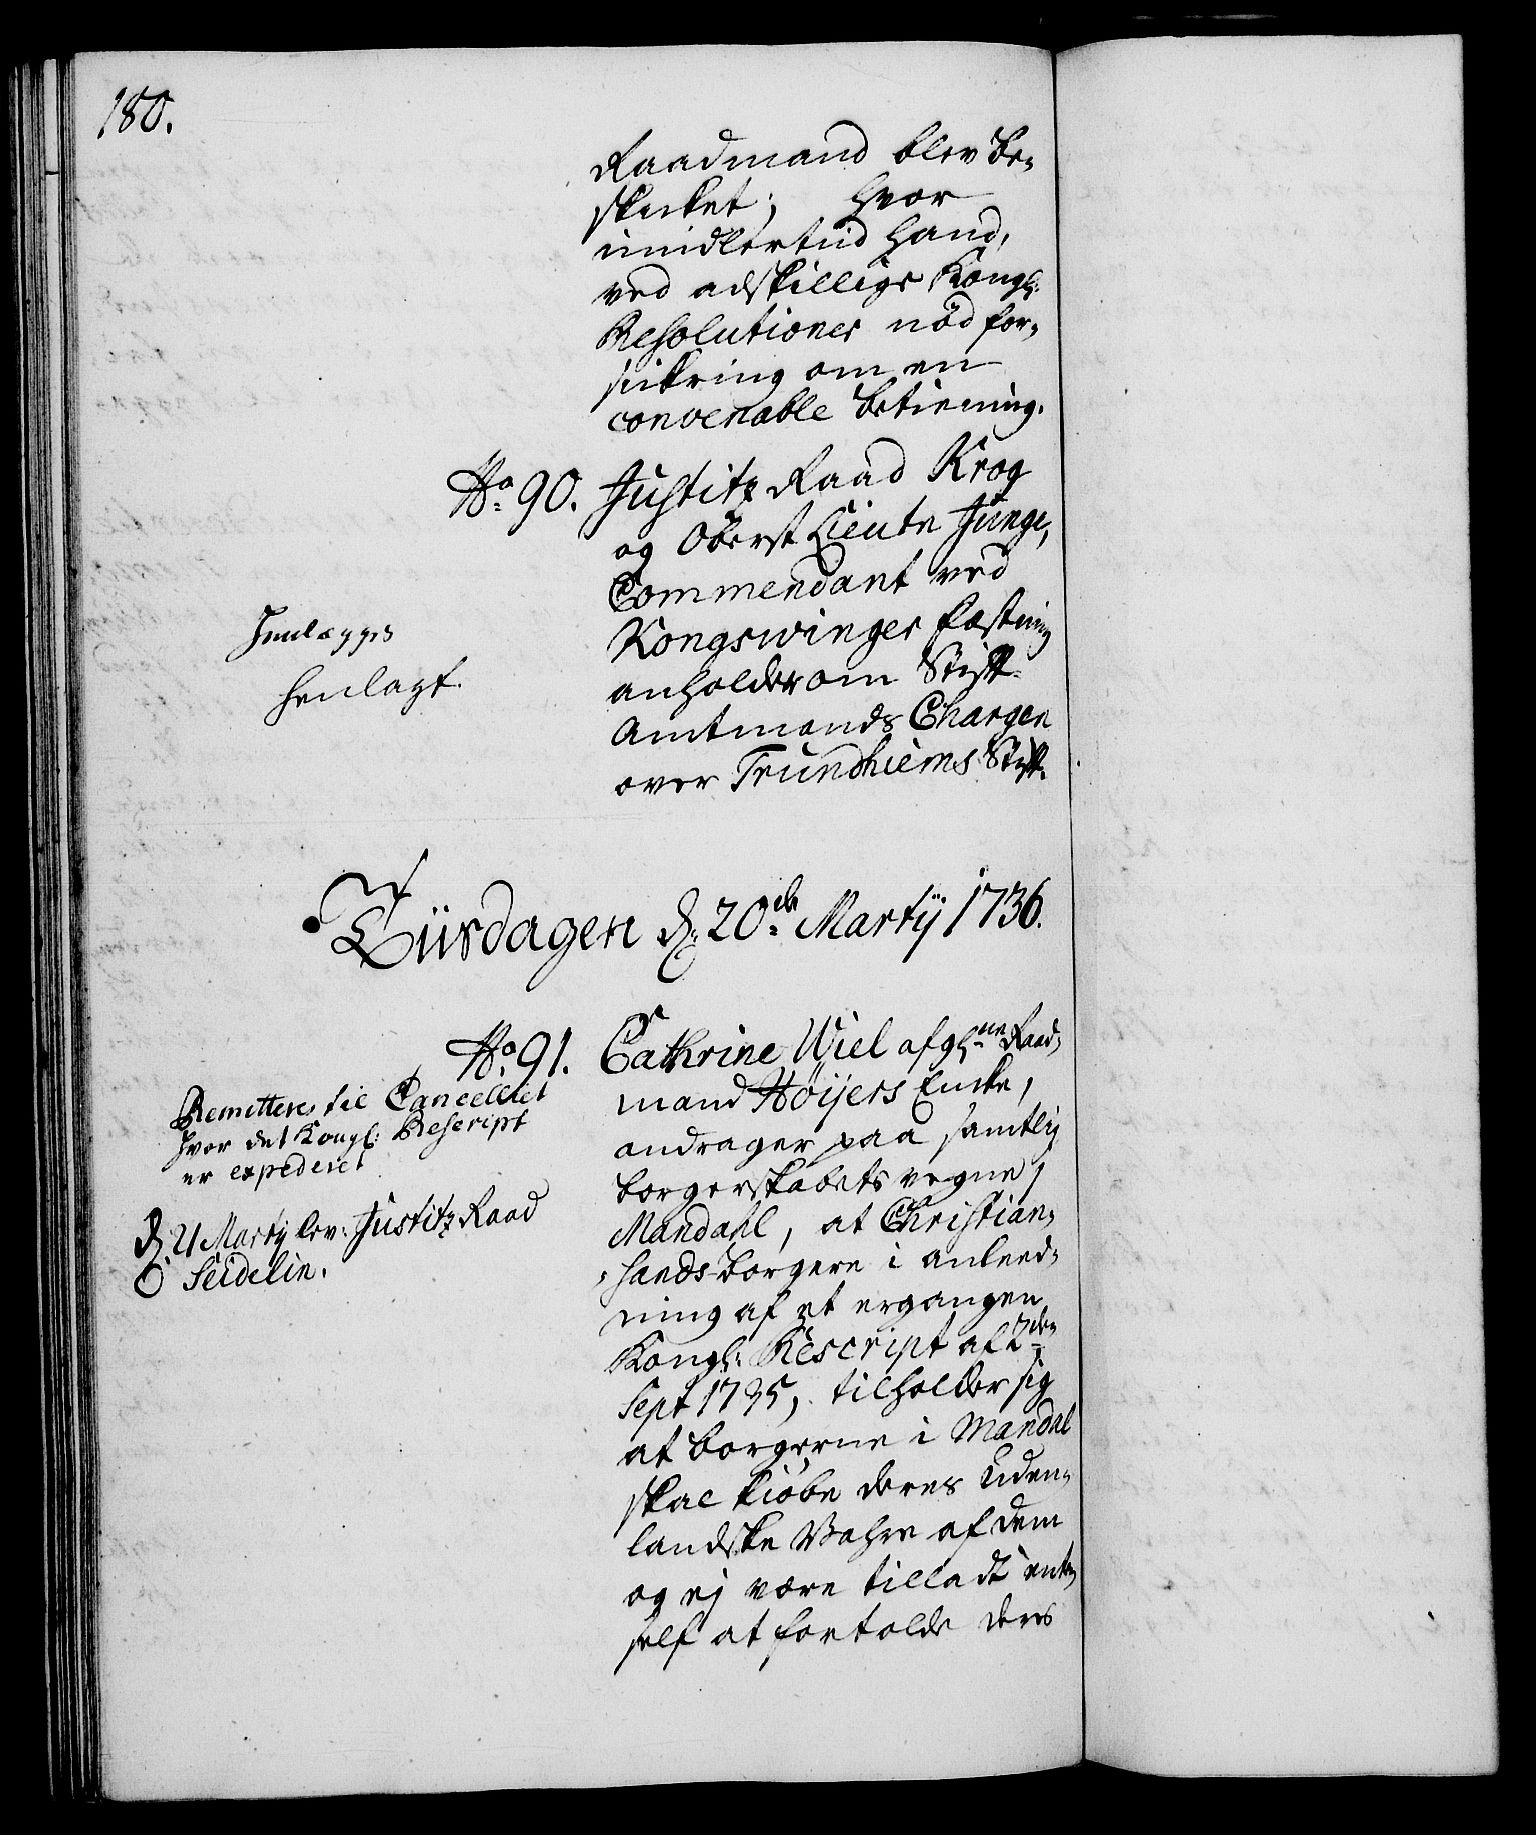 180.
Raadmand blev be-
skicket; hvor
imidlertiid hand,
ved adskillige Kongl:
Resolutioner nød for-
sikring om en
convenable betiening.
No. 90. Justitz Raad Krog
og Oberst Lieutn Junge,
Commendant ved
Kongswinger Fæstning
anholder om Stift-
Amtmands Chargen
over Trundhiems Stift.
Henlægges
henlagt.
Tiirsdagen d. 20de Martij 1736.
No. 91. Cathrine Wiel afgl:ne Raad-
mand Höijers Encke,
andrager paa samtlig
borgerskabets vegne i
Mandahl, at Christian-
sands borgere i anleed-
ning af et ergangen
Kongl: Rescript af 2den
Sept 1735, tilholder sig
at borgerne i Mandal
skal kiöbe deres Uden-
landske Vahre af dem
og ej være tilladt
self at fortolde deres
Remitteres til Cancelliet
hvor det Kongl: Rescript
er expederet
d. 21 Martij lev: Justitz Raad
Seidelin.